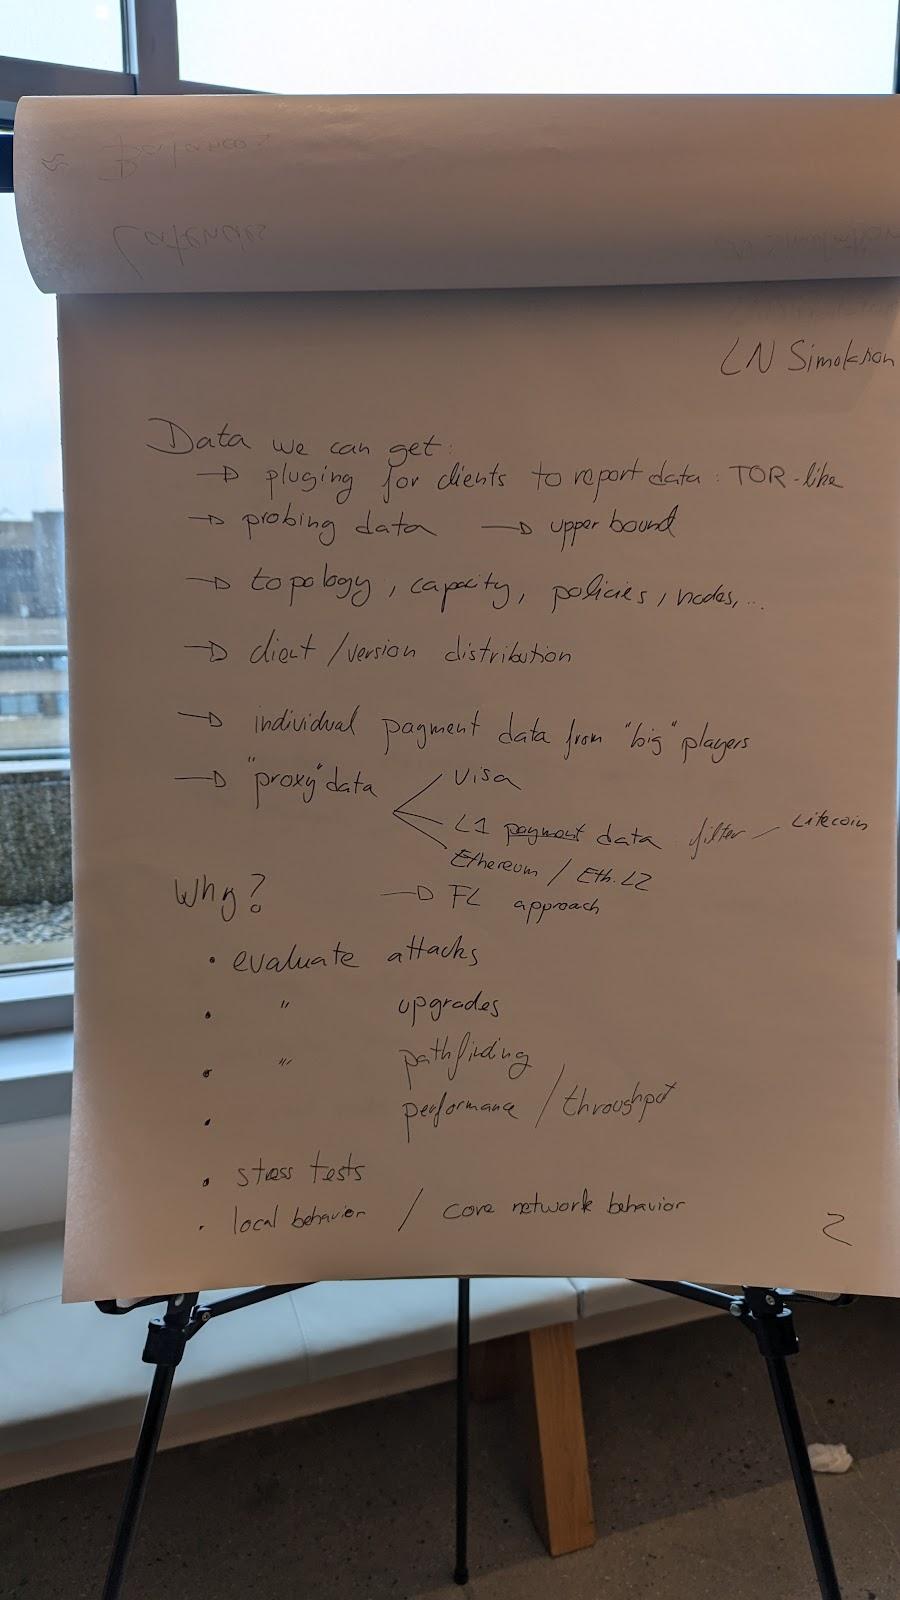 Balances
Latencies
LN Simulation
Data we can get:
→ pluging for clients to report data : TOR-like
→ probing data → upper bound
→ topology, capacity, policies, nodes, ...
→ client / version distribution
→ individual payment data from "big" players
→ "proxy" data
Visa
L1 payment data filter Litecoin
Ethereum / Eth. L2
Why?
→ FL approach
• evaluate attacks
• " upgrades
• " pathfinding
• performance / throughput
• stress tests
• local behavior / core network behavior
2